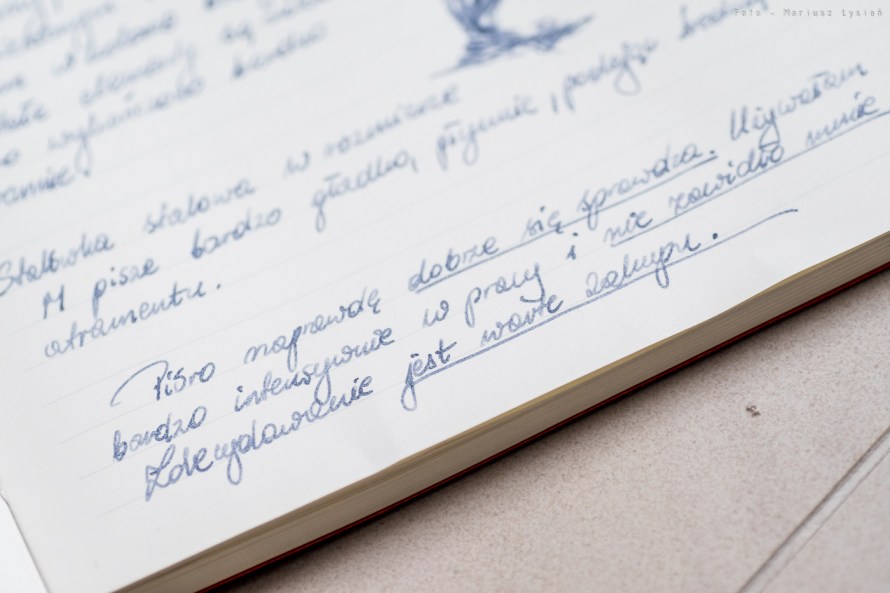 Foto - Mariusz Łysień
elementy są
wykończeniu bardzo
Stalówka stalowa w rozmiarze
M pisze bardzo gładko, płynnie, podaje średnio
atramentu.
Pióro naprawdę dobrze się sprawdza. Używałam
bardzo intensywnie w pracy i nie zawiodło mnie
Zdecydowanie jest warte zakupu.